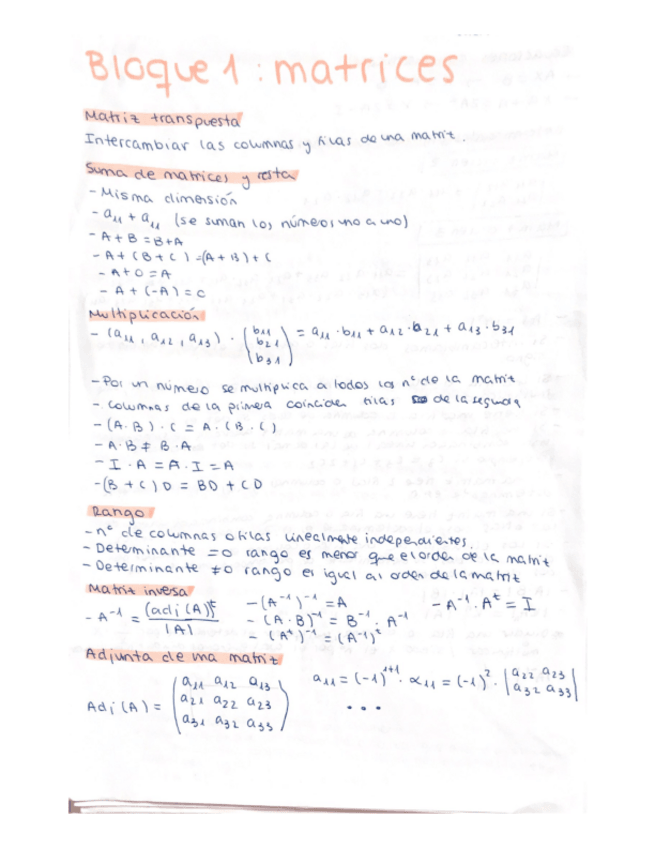 Bloque 1: matrices
Matriz transpuesta
Intercambiar las columnas y filas de una matriz.
Suma de matrices y resta
- Misma dimensión
- a₁₁ + a₁₁ (se suman los números uno a uno)
- A + B = B + A
- A + (B + C) = (A + B) + C
- A + 0 = A
- A + (-A) = 0
Multiplicación
- (a₁₁, a₁₂, a₁₃) · (b₁₁ b₂₁ b₃₁) = a₁₁·b₁₁ + a₁₂·b₂₁ + a₁₃·b₃₁
- Por un número se multiplica a todos los nº de la matriz
- columnas de la primera coinciden filas de la segunda
- (A·B)·C = A·(B·C)
- A·B ≠ B·A
- I·A = A·I = A
- (B + C)D = BD + CD
Rango
- nº de columnas o filas linealmente independientes.
- Determinante = 0 rango es menor que el orden de la matriz
- Determinante ≠ 0 rango es igual al orden de la matriz
Matriz inversa
- A⁻¹ = (adj (A))ᵗ / |A| - (A⁻¹)⁻¹ = A - A⁻¹·Aᵗ = I
- (A·B)⁻¹ = B⁻¹·A⁻¹
- (Aᵗ)⁻¹ = (A⁻¹)ᵗ
Adjunta de una matriz
Adj (A) = (a₁₁ a₁₂ a₁₃ a₂₁ a₂₂ a₂₃ a₃₁ a₃₂ a₃₃) a₁₁ = (-1)¹⁺¹·α₁₁ = (-1)²·|a₂₂ a₂₃ a₃₂ a₃₃|
...